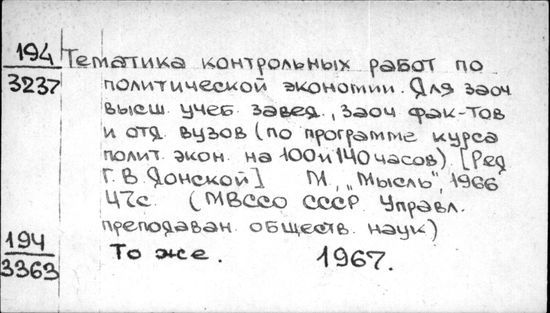 194 Тематика контрольных работ по
3237 политической экономии. Для заоч
высш. учеб. завед., заоч фак-тов
и отд. вузов (по программе курса
полит. экон. на 100 и 140 часов). [Ред
Г. В. Донской] М., "Мысль", 1966
47с. (МВССО СССР. Управл.
преподаван. обществ. наук)
194 То же. 1967.
3363